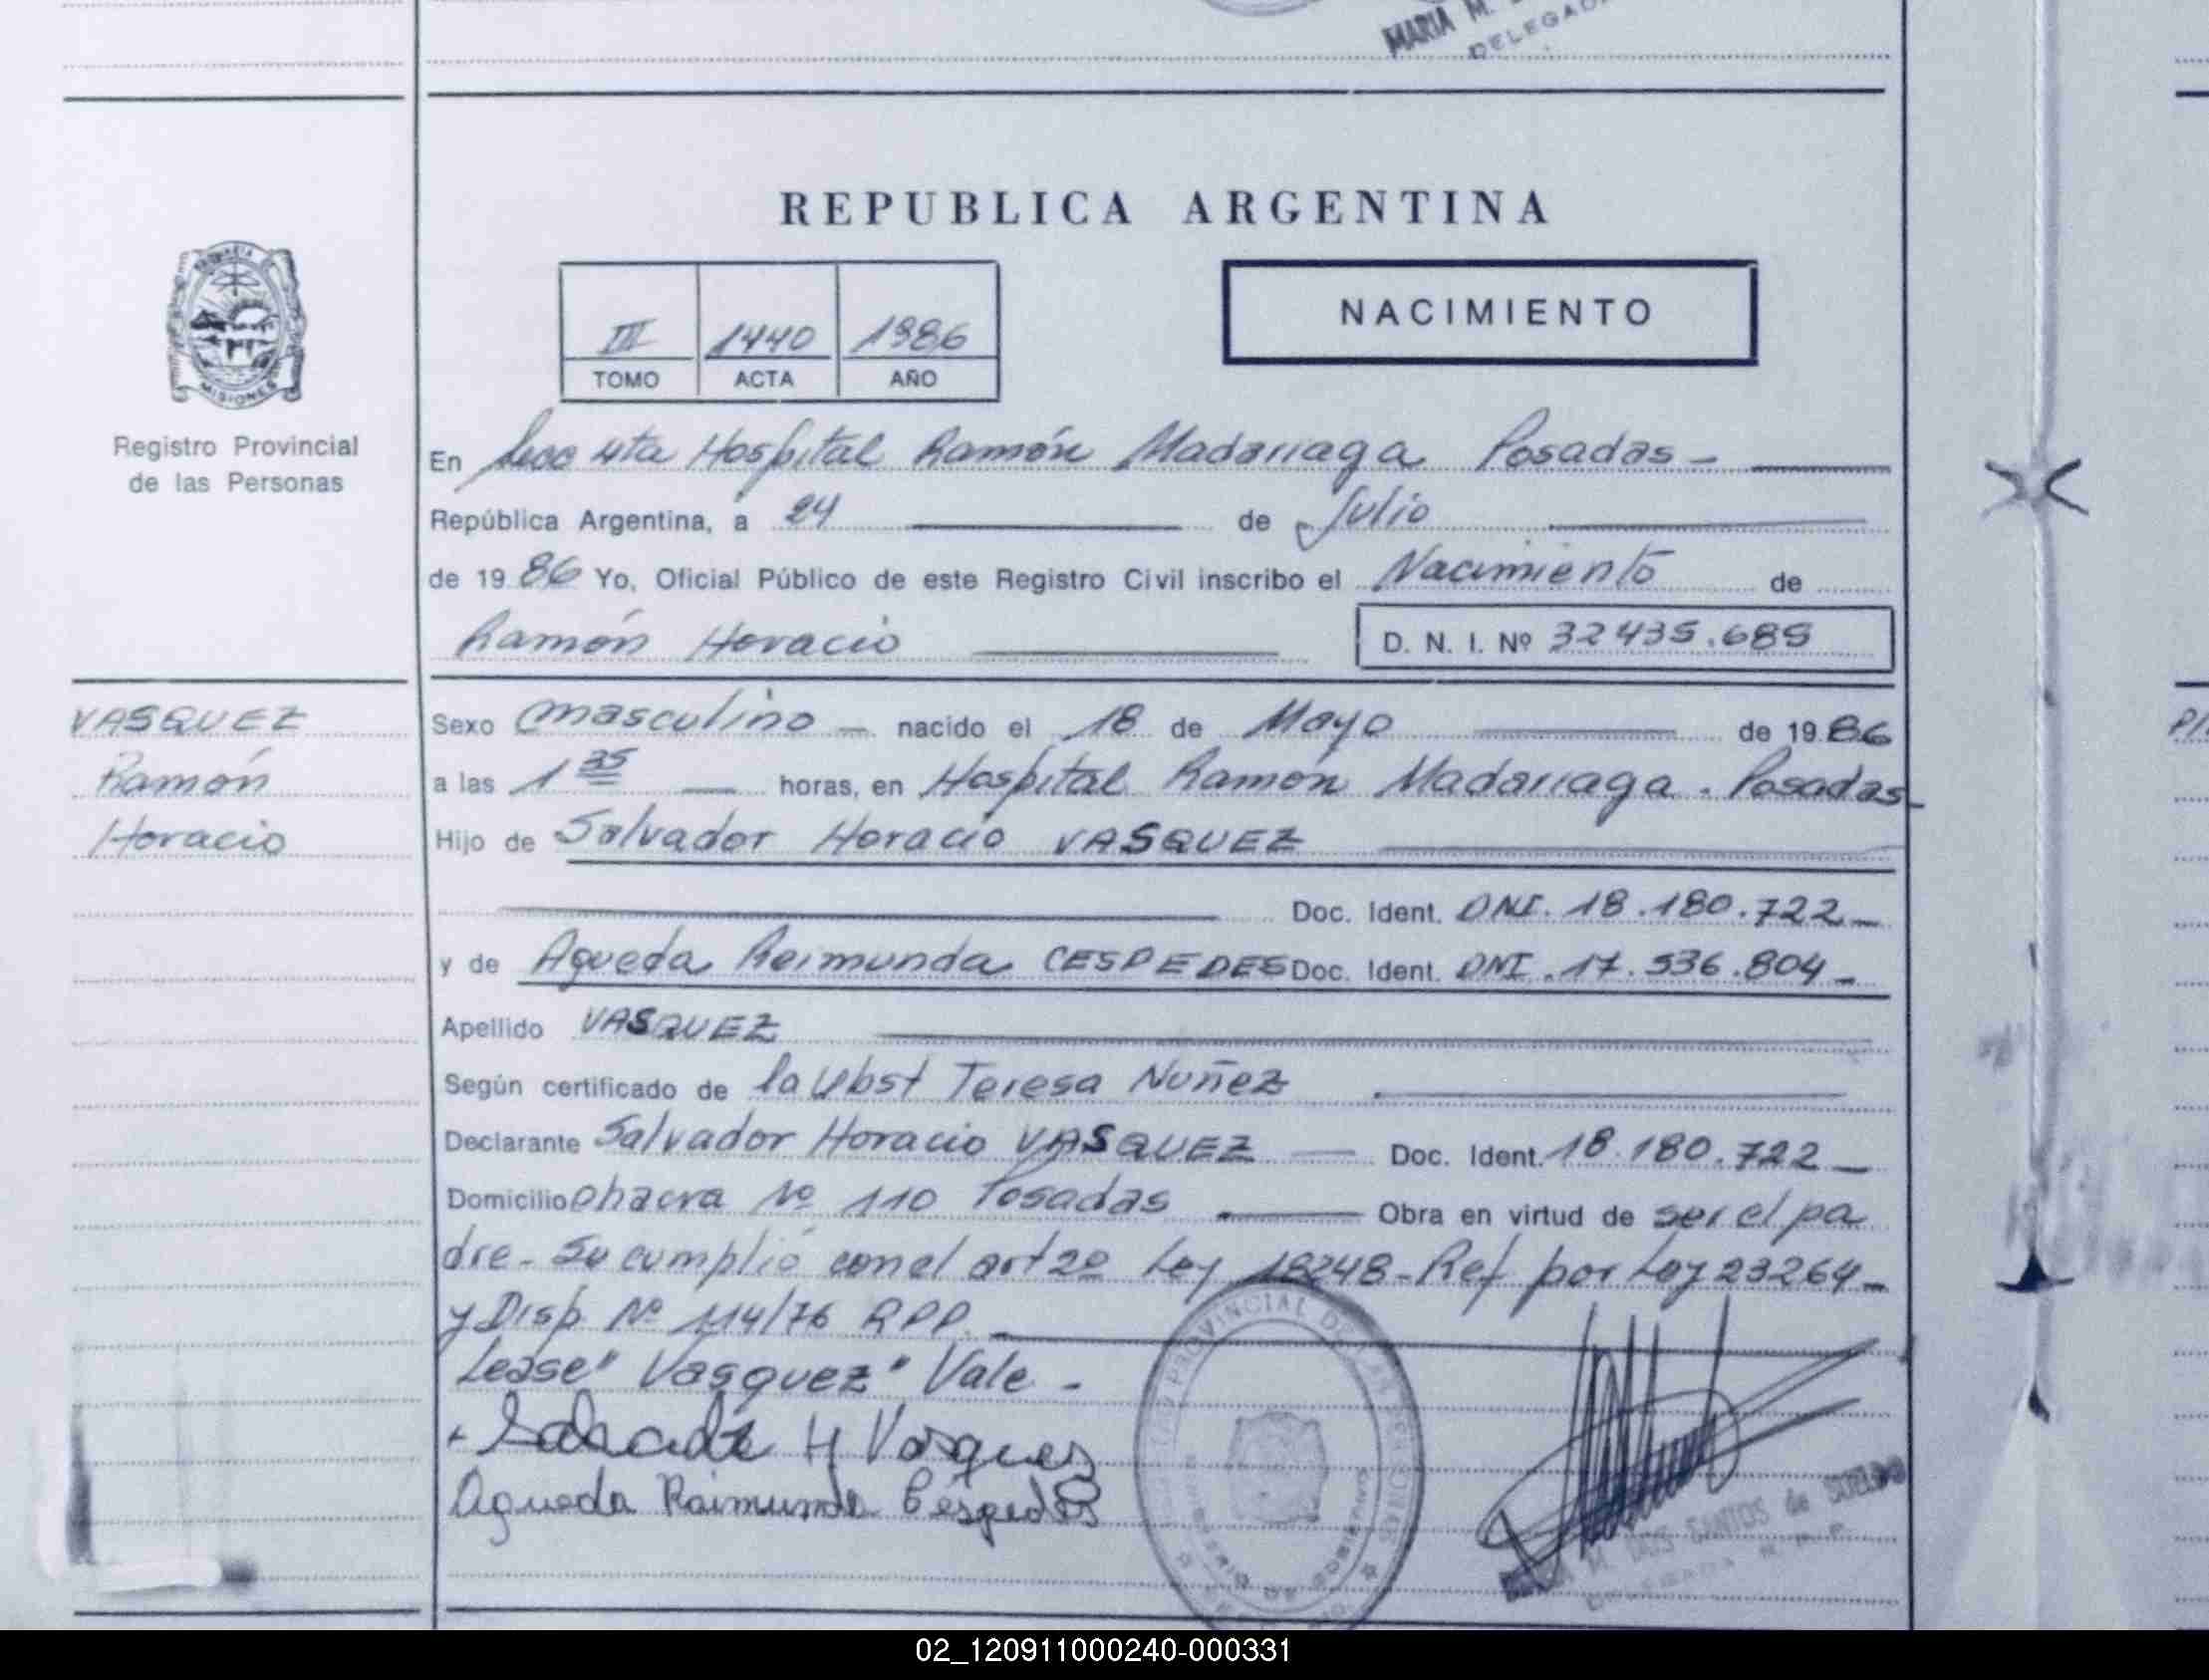 MARIA M.
DELEGADA
REPUBLICA ARGENTINA
MISIONES
NACIMIENTO
III 1440 1986
TOMO ACTA AÑO
Registro Provincial
de las Personas
En Secc 4ta Hospital Ramón Madariaga Posadas -
República Argentina, a 24 de Julio
de 1986 Yo, Oficial Público de este Registro Civil inscribo el Nacimiento de
Ramón Horacio D. N. I. Nº 32435.689
VASQUEZ
Ramón
Horacio
Sexo masculino - nacido el 18 de Mayo de 1986
a las 1 35 horas, en Hospital Ramón Madariaga. Posadas-
Hijo de Salvador Horacio VASQUEZ
Doc. Ident. DNI. 18.180.722-
y de Agueda Reimunda CESPEDES Doc. Ident. DNI. 17.536.804-
Apellido VASQUEZ
Según certificado de la Obst Teresa Nuñez
Declarante Salvador Horacio VASQUEZ - Doc. Ident. 18.180.722-
Domicilio Chacra Nº 110 Posadas Obra en virtud de ser el pa
dre- Se cumplió con el art 2º Ley 18248-Ref por Ley 23264-
y Disp Nº 114/76 RPP.
Lease "Vasquez" Vale -
H Vasquez
Agueda Raimunda Céspedes
PROVINCIAL DE LAS PERSONAS
M. DOS SANTOS de SUELDO
DELEGADA R. P. P.
02_120911000240-000331